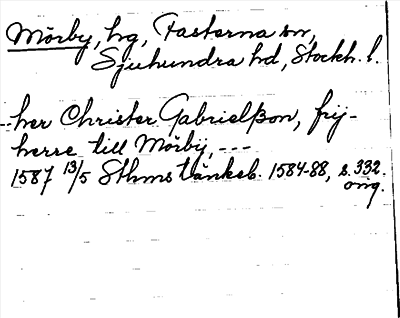 Mörby, hg, Fasterna sn,
Sjuhundra hd, Stockh. l.
--her Christer Gabrielßon, frij-
herre till Mörbÿ, ---
1587 13/5 Sthms tänkeb. 1584-88, s. 332.
omg.